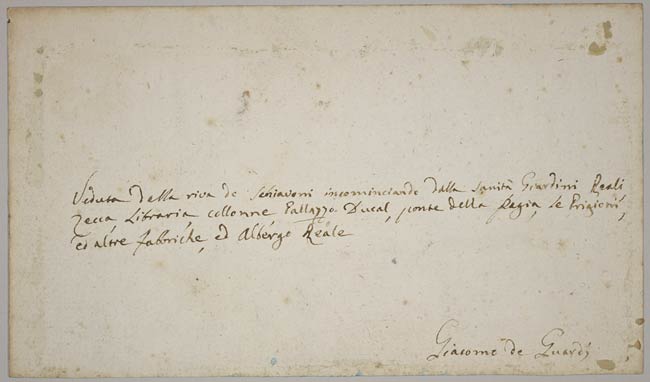 Veduta della riva de Schiavoni incominciando dalla Sanità Giardini Reali
Zecca, Libraria collonne Pallazzo Ducal, ponte della Pagia, le Prigioni,
ed altre fabbriche, ed Albergo Reale
Giacomo de Guardi